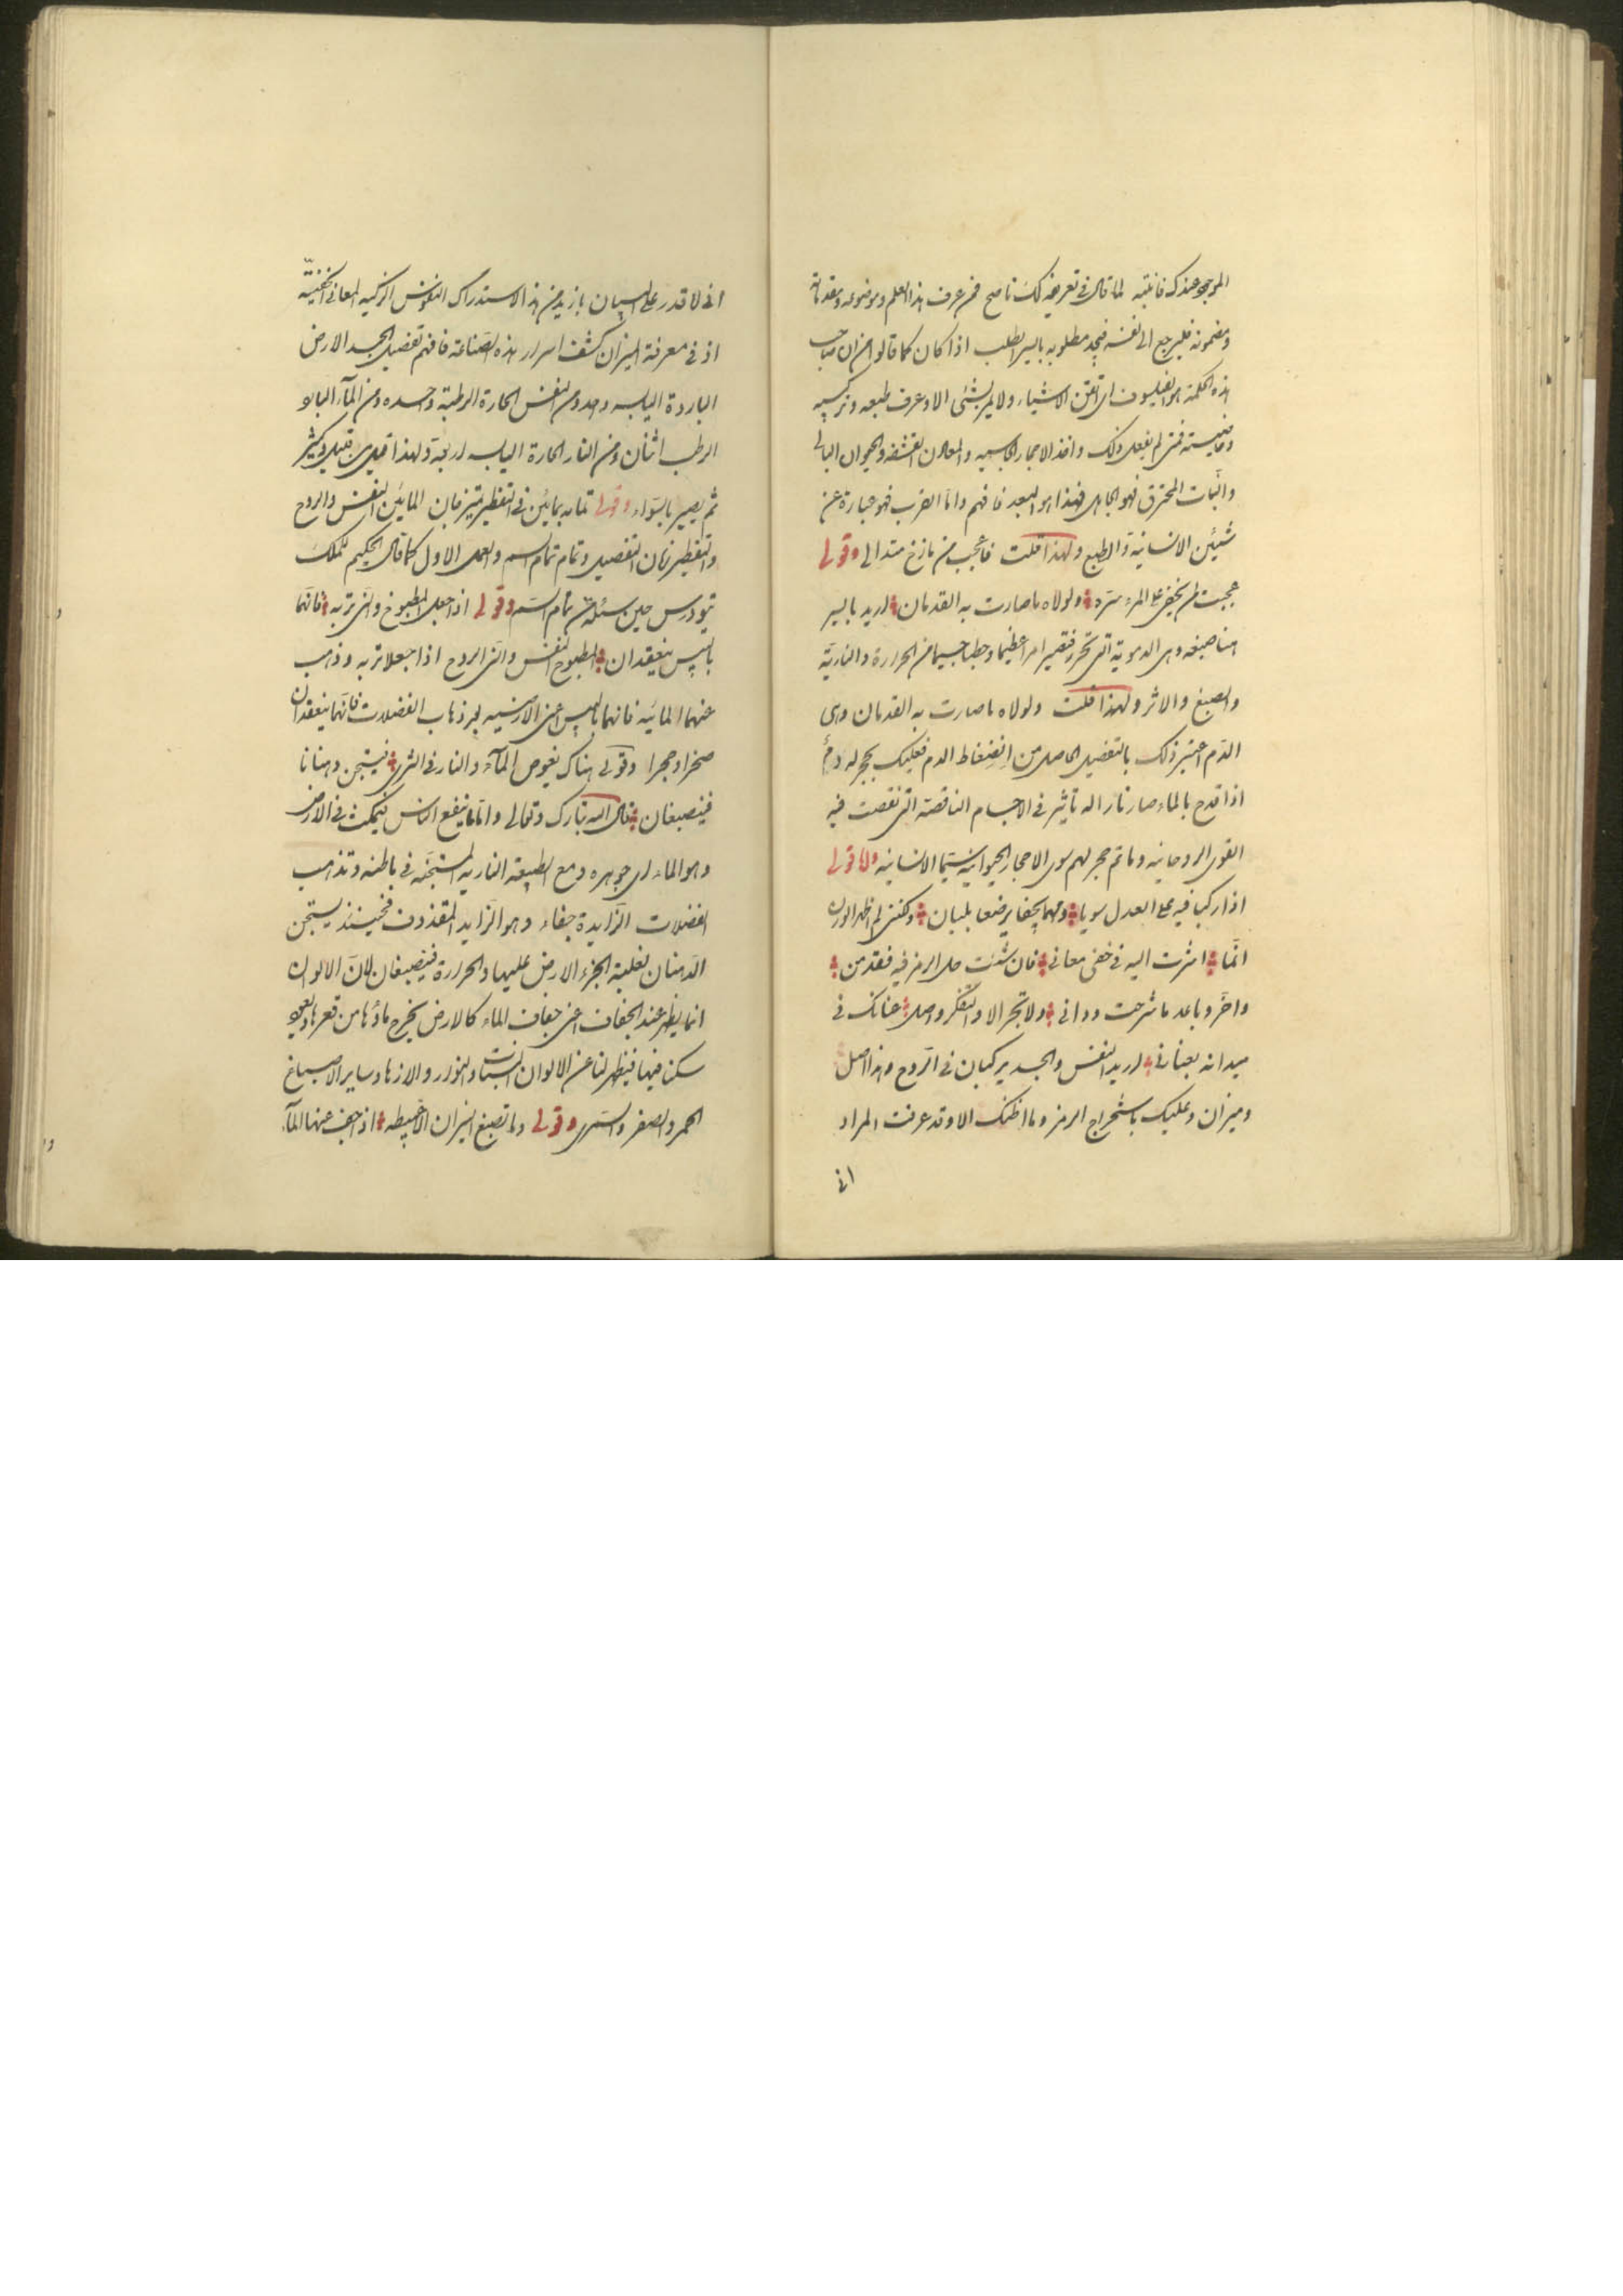 الموجود عندكم فانتبه لما قال في تعريفه لك ناصح فمن عرف هذا العلم وموضوعه ومقدماته
ومضمونه فليرجع الى نفسه فيجد مطلوبه باليسير الطلب اذا كان كما قالوا ان صاحب
هذه الحكمة هو الفيلسوف اى اتقن الاشياء ولا يمر بشئ الا وعرف طبعه وتركيبه
وخاصيته فمتى لم يفعل ذلك واخذ الاحجار الكاسيه والمعادن القشفه والحيوان البالى
والنبات المحترق فهو الجاهل فهذا هو البعد فافهم واما القرب فهو عبارة عن
شيئين الانسانية والطبع ولهذا قلت فاعجب من نازح متدانى وقولى
عجبت لمن يخفى على المرء سره ولولاه ما صارت به القدمان اريد بالسر
هنا صبغه وهى الدموية التى تحرر فتصير امرا عظيما وحطبا جسيما من الحرارة والنارية
والصبغ والاثر ولهذا قلت ولولاه ما صارت به القدمان وهى
الدم اعتبر ذلك بالتفصيل الحاصل من انضغاط الدم فعليك بحجر له دم
اذا قدح بالماء صار نارا له تاثير فى الاجسام الناقصة التى نقصت فيه
القوى الروحانيه وما تم حجر لهم سوى الاحجار الحيوانية سيما الانسانيه واما قولى
اذا ركبا فيه على العدل سويا ومهما يجفا يرضعا بلبان ولكننى لم اظهر الوزن
انما اشرت اليه فى خفى معانى فان شئت حل الرمز فيه فقد من
واخر وباعد ما شرحت ودانى ولا تجر الا والتفكر واصل عنانك فى
ميدانه بعنانى اريد النفس والجسد يركبان فى الروح وهذا اصل
وميزان وعليك باستخراج الرمز وما اظنك الا وقد عرفت المراد
انى
انى لا اقدر على البيان بازيد من هذا الاستدراك النفوس الزكيه المعانى الخفيه
اذ فى معرفة الميزان كشف اسرار هذه الصناعة فافهم تفصيل الجسد الارض
الباردة اليابسه واحد ومن النفس الحارة الرطبة واحده ومن الماء البارد
الرطب اثنان ومن النار الحارة اليابسه اربعة ولهذا قيل من قليل وكثير
ثم يصير بالسواء وقولى تمامه بمائين فى التقطير تميز فان المائين النفس والروح
والتقطير زمان التفصيل وتمام تمام السر والعمل الاول كما قال الحكيم للملك
تيودرس حين سئله عن تمام السر وقولى اذا جعل المطبوخ والنى تربه فانهما
باليبس ينعقدان المطبوخ النفس والنى الروح اذا جعلا تربه وذهب
عنهما المائيه فانهما باليبس اعنى الارضيه بعد ذهاب الفضلات فانهما ينعقدان
صخرا وحجرا وقولى هناك يغوص الماء والنار فى الثرى فيستجن دهنانا
فينصبغان قال الله تبارك وتعالى واما ما ينفع الناس فيمكث فى الارض
وهو الماء اى جوهره ومع الطبيعة الناريه المستجنه فى باطنه وتذهب
الفضلات الزايدة جفاء وهو الزايد المقذوف فحينئذ يستجن
الدهنان لغلبة الجزء الارض عليها والحرارة فينصبغان لان الالوان
انما يظهر عند الجفاف اعنى جفاف الماء كالارض يخرج ماؤها من قعرها ويعود
سكنا فيها فيظهر لنا عن الالوان النبات والنوار والازهار وساير الاصباغ
الحمر والصفر والسمر وقولى وما تصبغ النيران الا بسيطه اذا جف عنها الماء